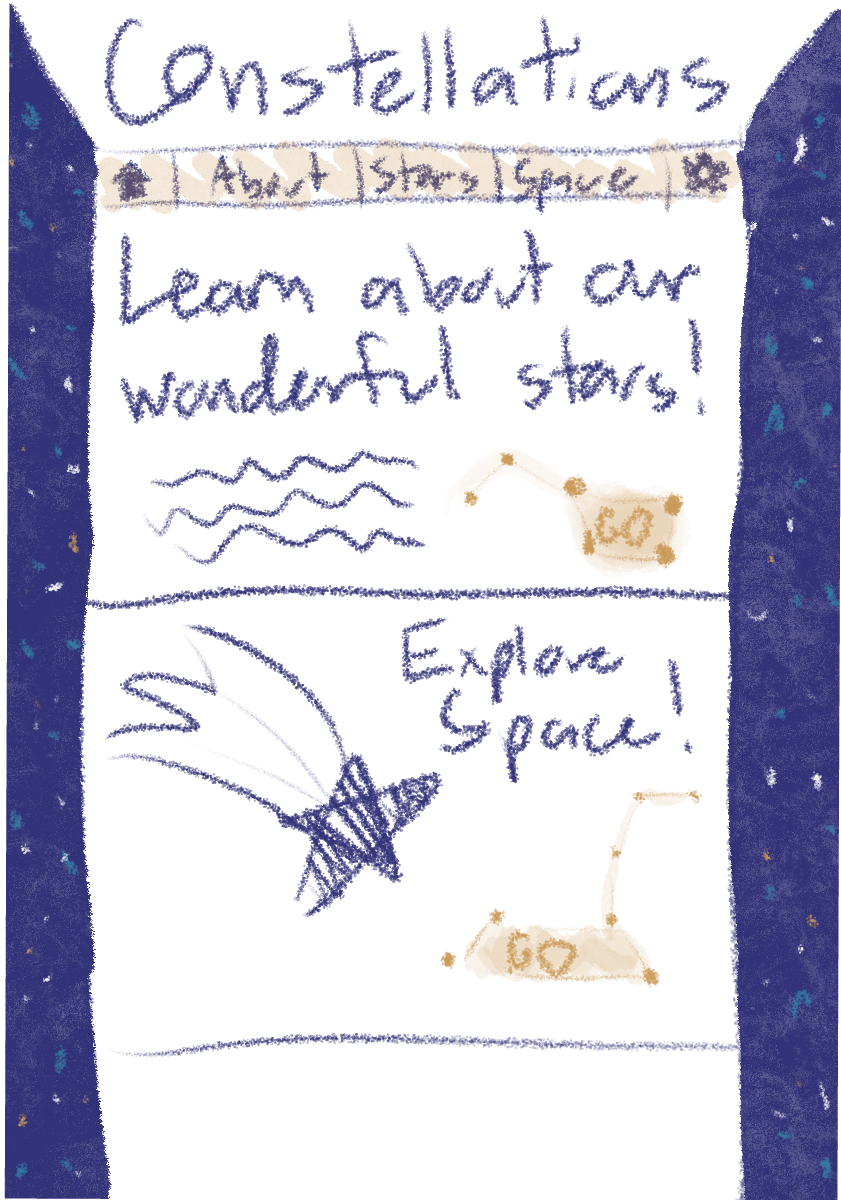 Constellations
About Stars Space
Learn about our
wonderful stars!
GO
Explore
Space!
GO